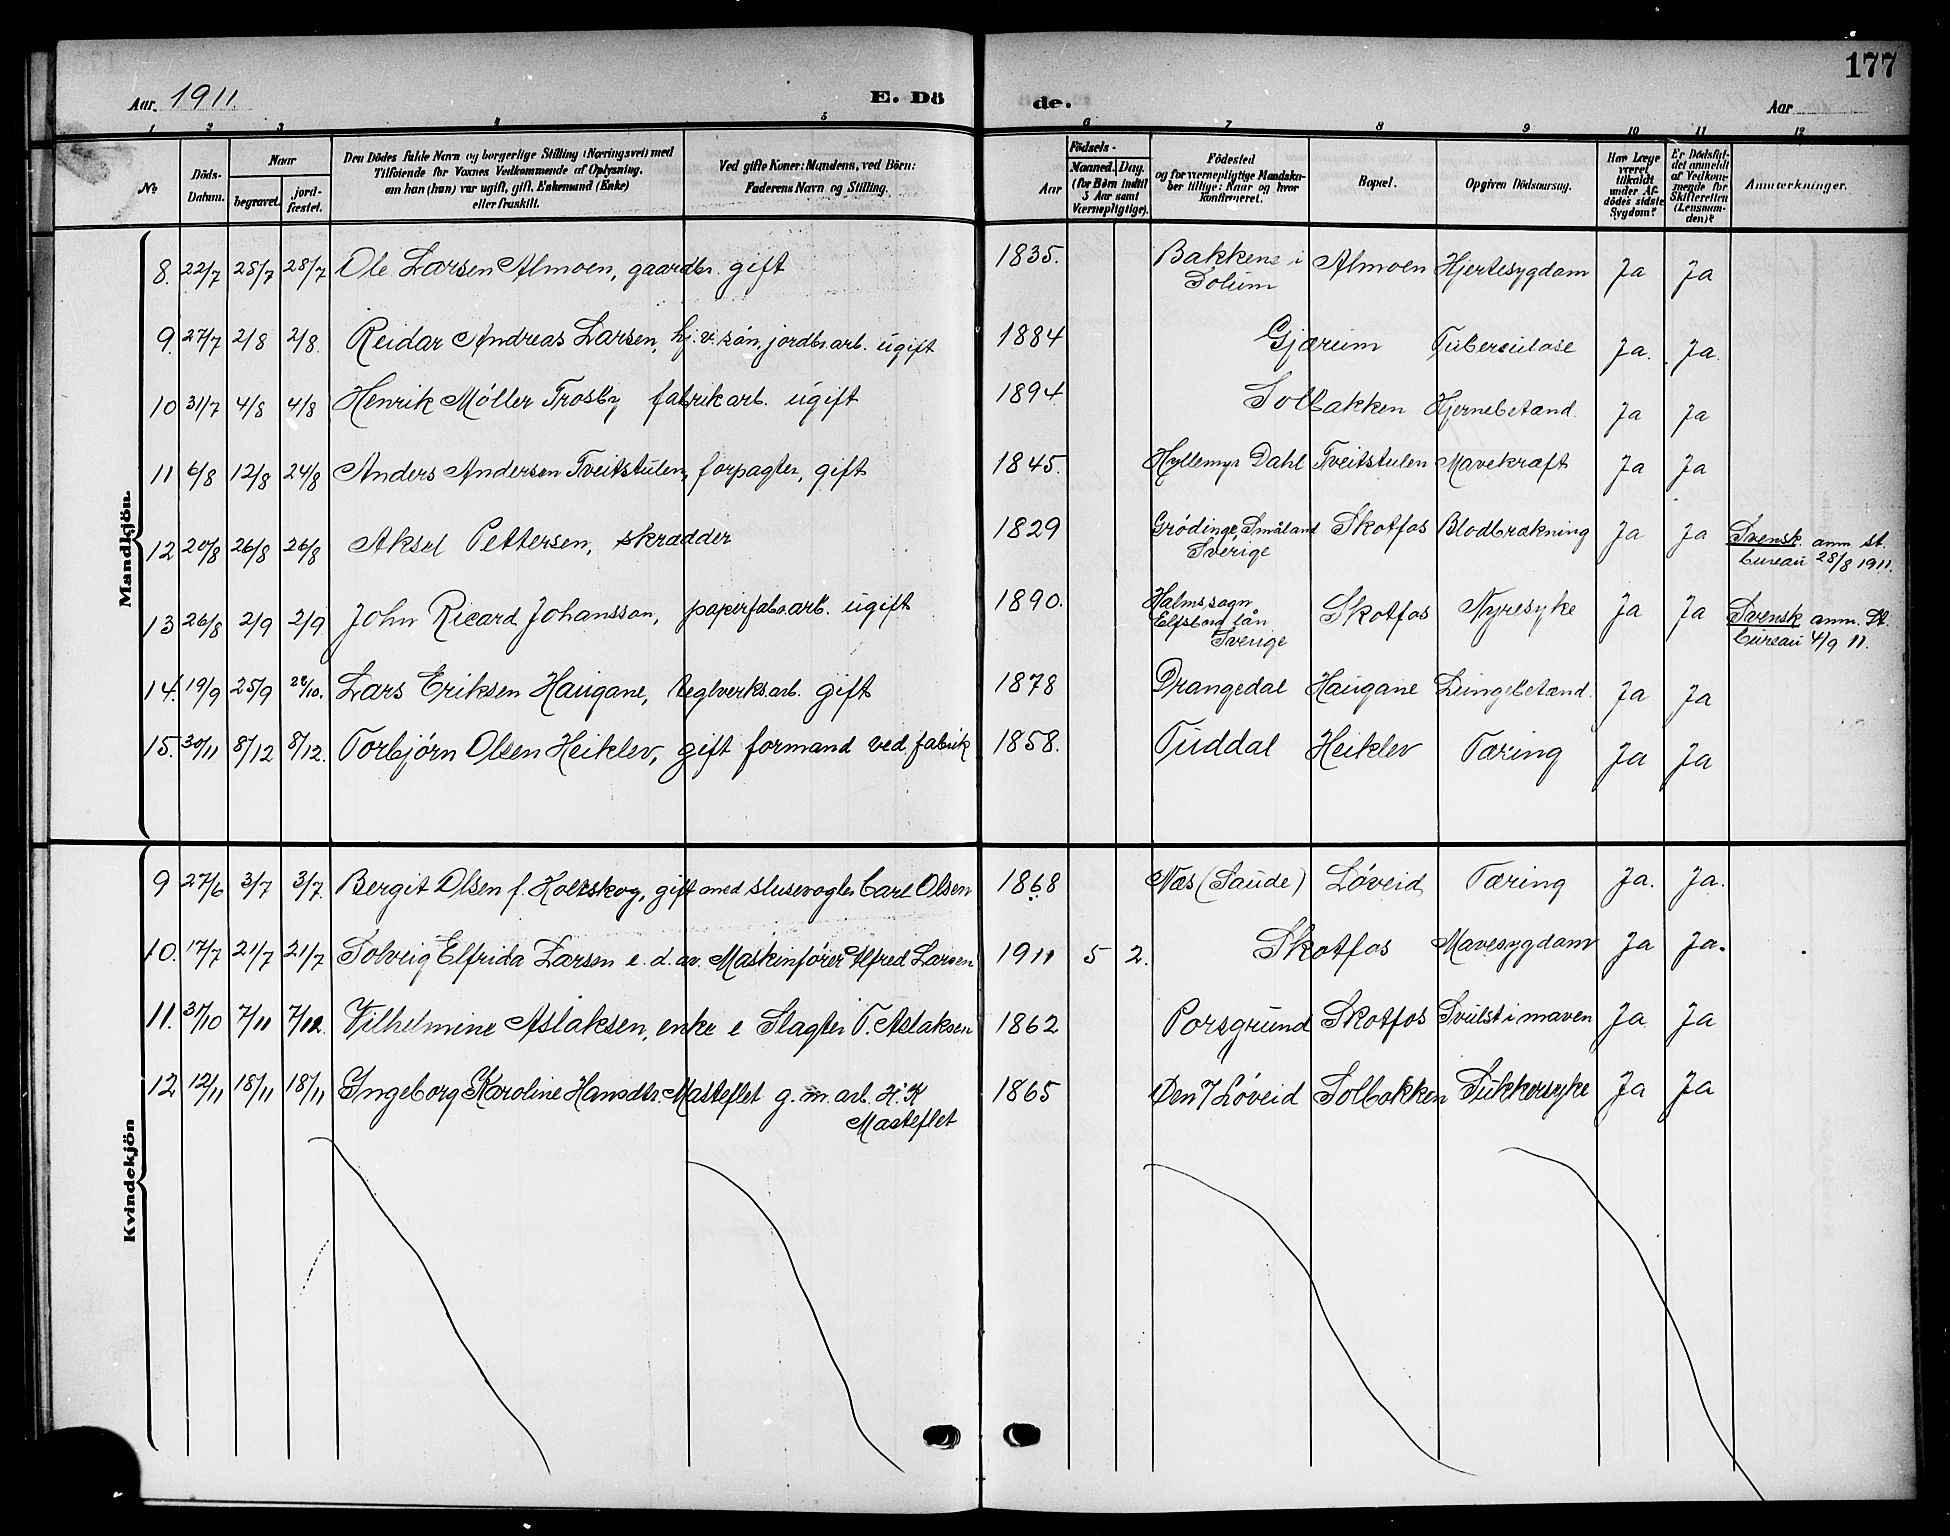 177
Aar. 1911.
E. Dö
de.
Aar
1 2 3 4 5 6 7 8 9 10 11 12
No
Döds-
Datum.
Naar
begravet.
jord-
fæstet.
Den Dödes fulde Navn og borgerlige Stilling (Næringsvei) med
Tilföiende for Voxnes Vedkommende af Oplysning,
om han (hun) var ugift, gift, Enkemand (Enke)
eller fraskilt.
Ved gifte Koner: Mandens, ved Börn:
Faderens Navn og Stilling.
Aar
Födsels-
Maaned. Dag.
(for Börn indtil
5 Aar samt
Værnepligtige).
Födested
og for værnepligtige Mandska-
ber tillige: Naar og hvor
konfirmeret.
Bopæl.
Opgiven Dödsaarsag.
Har Læge
været
tilkaldt
under Af-
dödes sidste
Sygdom?
Er Dödsfal-
det anmeldt
af Vedkom-
mende for
Skifteretten
(Lensman-
den)?
Anmærkninger.
Mandkjön.
8. 22/7 25/7 28/7 Ole Larsen Almoen, gaardbr. gift 1835. Bakkene i Solum Almoen Hjertesygdom Ja Ja
9. 27/7 2/8 2/8. Reidar Andreas Larsen, hj.v. søn, jordbr.arb. ugift 1884 Gjærum Tuberculose Ja. Ja.
10 31/7 4/8 4/8 Henrik Møller Trosby fabrikarb. ugift 1894 Solbakken Hjernebetænd. Ja Ja
11 6/8 12/8 24/8 Anders Andersen Tveitstulen, forpagter, gift 1845. Hyllemyr Dahl Tveitstulen Mavekræft Ja Ja
12 20/8 26/8 26/8 Aksel Pettersen, skrædder 1829 Grødinge, Småland Sverige Skotfos Blodbrækning Ja Ja Svensk. anm. st. bureau 28/8 1911.
13 26/8 2/9 2/9 John Ricard Johansson, papirfabr.arb. ugift 1890. Halms sogn Elfsborg län Sverige Skotfos Nyresyke Ja Ja Svensk anm. St. bureau 4/9 11.
14. 19/9 25/9 Lars Eriksen Haugane, teglverks.arb. gift 1878 Drangedal Haugane Lungebetænd. Ja Ja
15. 30/11 8/12 8/12. Torbjørn Olsen Heiklev, gift formand ved fabrik 1858. Tuddal Heiklev Tæring Ja Ja
Kvindekjön
9 27/6 3/7 3/7. Bergit Olsen f. Kolsskog, gift med slusevogter Carl Olsen 1868 Næs (Saude) Løveid Tæring Ja. Ja.
10. 17/7 21/7 21/7 Solveig Elfrida Larsen e. d. av. Maskinfører Alfred Larsen 1911 5 2. Skotfos Mavesygdom Ja Ja.
11. 31/10 7/11 7/11. Vilhelmine Aslaksen, enke e Slagter T. Aslaksen 1862 Porsgrund Skotfos Svulst i maven Ja Ja
12 12/11 18/11 18/11 Ingeborg Karoline Hansdtr. Masteflet g. m. arb. H. K Masteflet 1865 Løveid Solbakken Sukkersyke Ja Ja